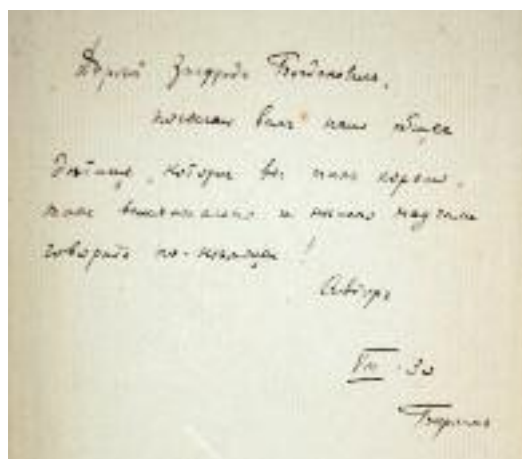 Дорогой Зигфрид Богданович,
посылаю Вам наше общее
детище, которое Вы так хорошо,
так внимательно и нежно научили
говорить по-немецки!
Автор
VII - 30
Берлин